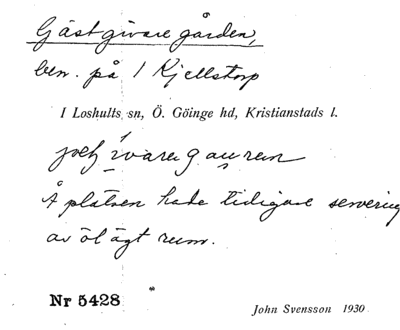 Gästgivare gården,
ben. på 1 Kjellstorp
I Loshults sn, Ö. Göinge hd, Kristianstads l.
Å platsen hade tidigare servering
av öl ägt rum.
Nr 5428
John Svensson 1930